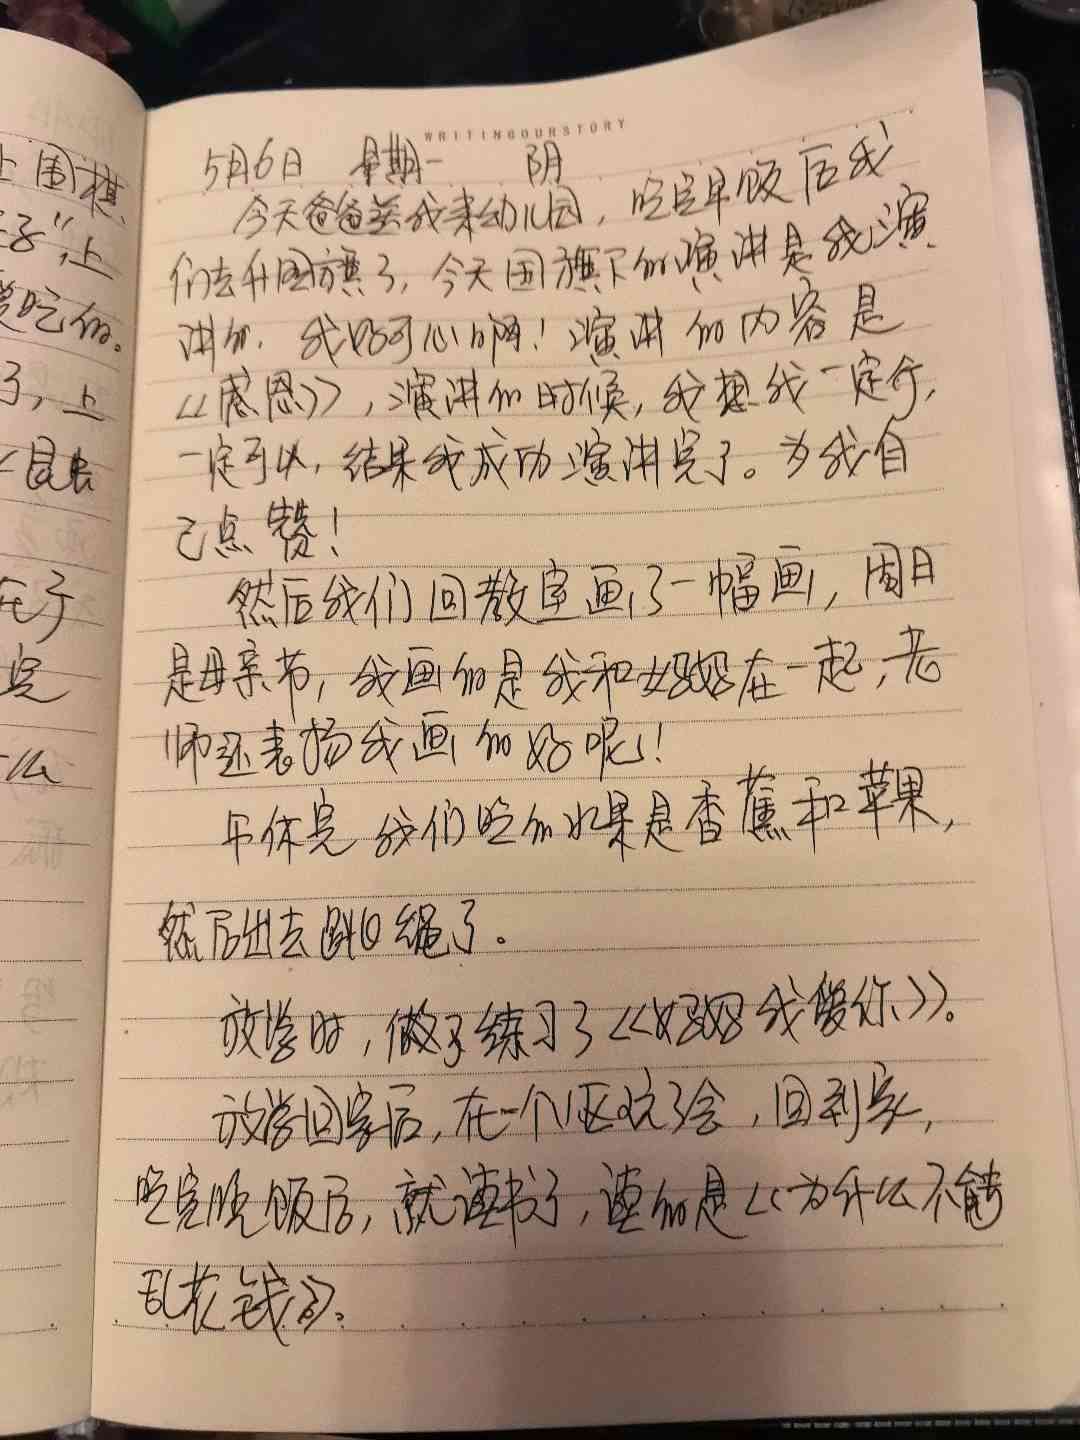 WRITINGOURSTORY
5月6日 星期一 阴
今天爸爸送我来幼儿园，吃完早饭后我
们去升国旗了，今天国旗下的演讲是我演
讲的，我好开心啊！演讲的内容是
《感恩》，演讲的时候，我想我一定行，
一定可以，结果我成功演讲完了。为我自
己点赞！
然后我们回教室画了一幅画，周日
是母亲节，我画的是我和妈妈在一起，老
师还表扬我画的好呢！
午休完我们吃的水果是香蕉和苹果，
然后出去跳绳了。
放学时，做了练习了《妈妈我爱你》。
放学回家后，在一个小区玩了会，回到家，
吃完晚饭后，就读书了，读的是《为什么不能
乱花钱》。
上围棋、
子”，上
吃的。
了，上
《昆虫
在于
完
什么